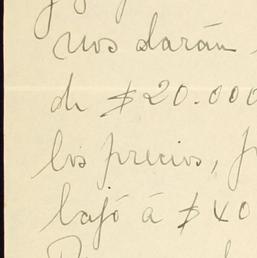 nos darán
de $20.000
los precios,
bajó á $40